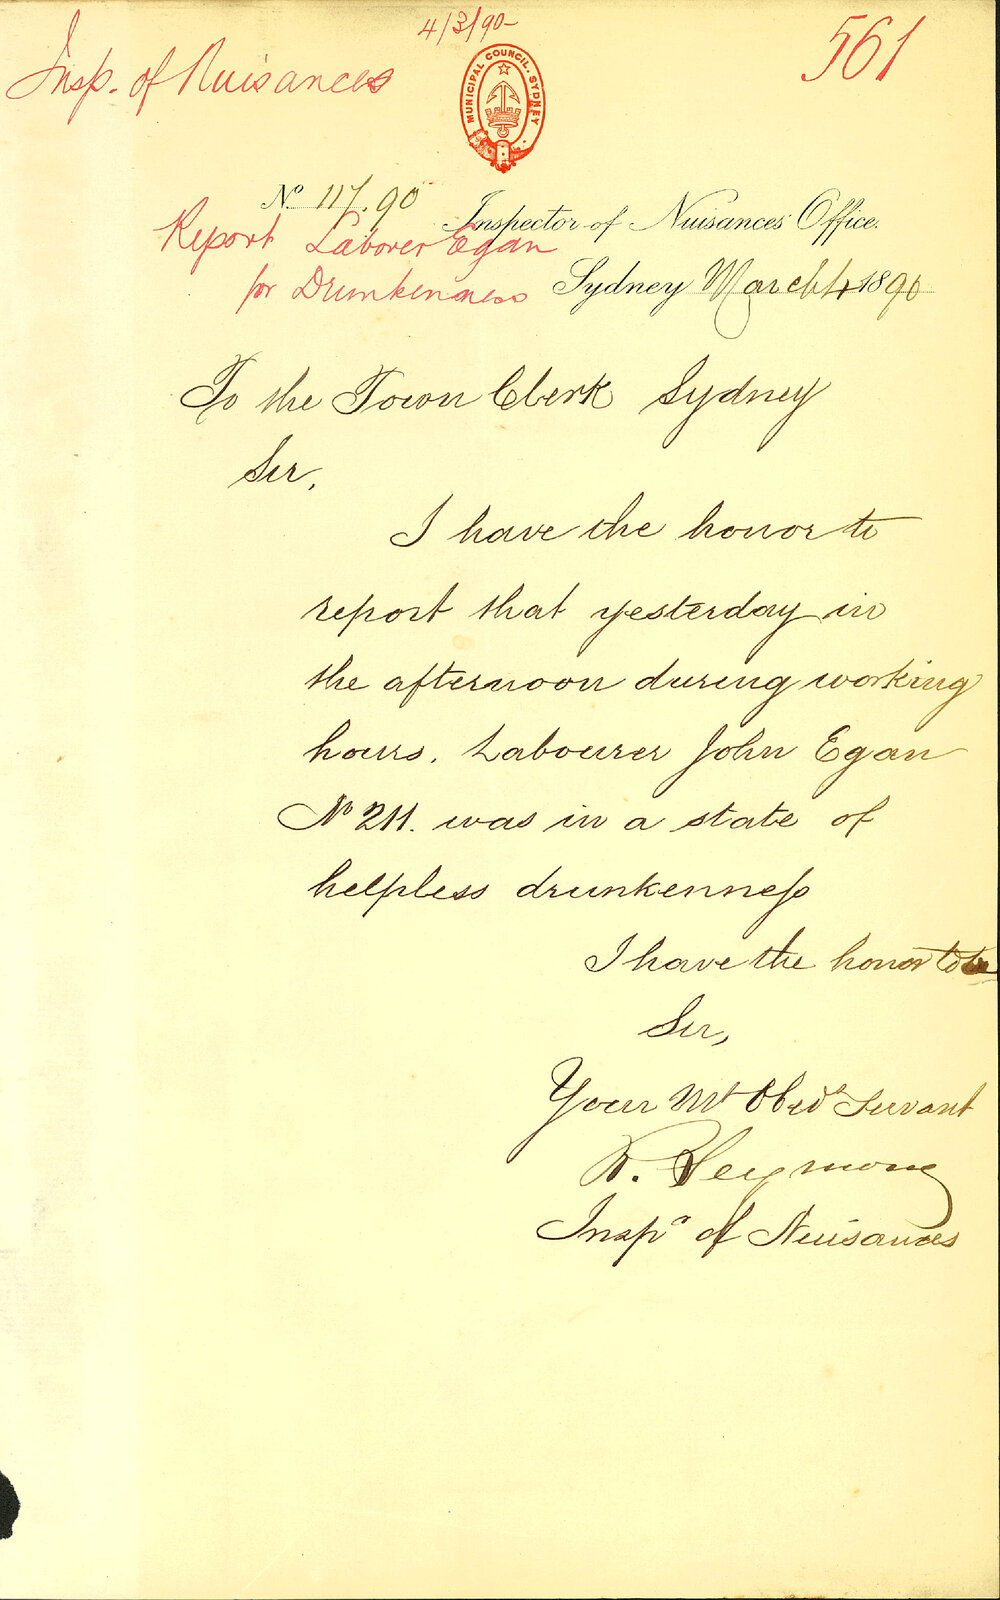 4/3/90-
561
Insp. of Nuisances
MUNICIPAL COUNCIL. SYDNEY
No 117.90
Inspector of Nuisances Office.
Report Laborer Egan
for Drunkenness
Sydney March 4 1890
To the Town Clerk Sydney
Sir,
I have the honor to
report that yesterday in
the afternoon during working
hours. Labourer John Egan
No 211. was in a state of
helpless drunkenness
I have the honor to be
Sir,
Your Mt Obedt Servant
R. Seymour
Inspr of Nuisances